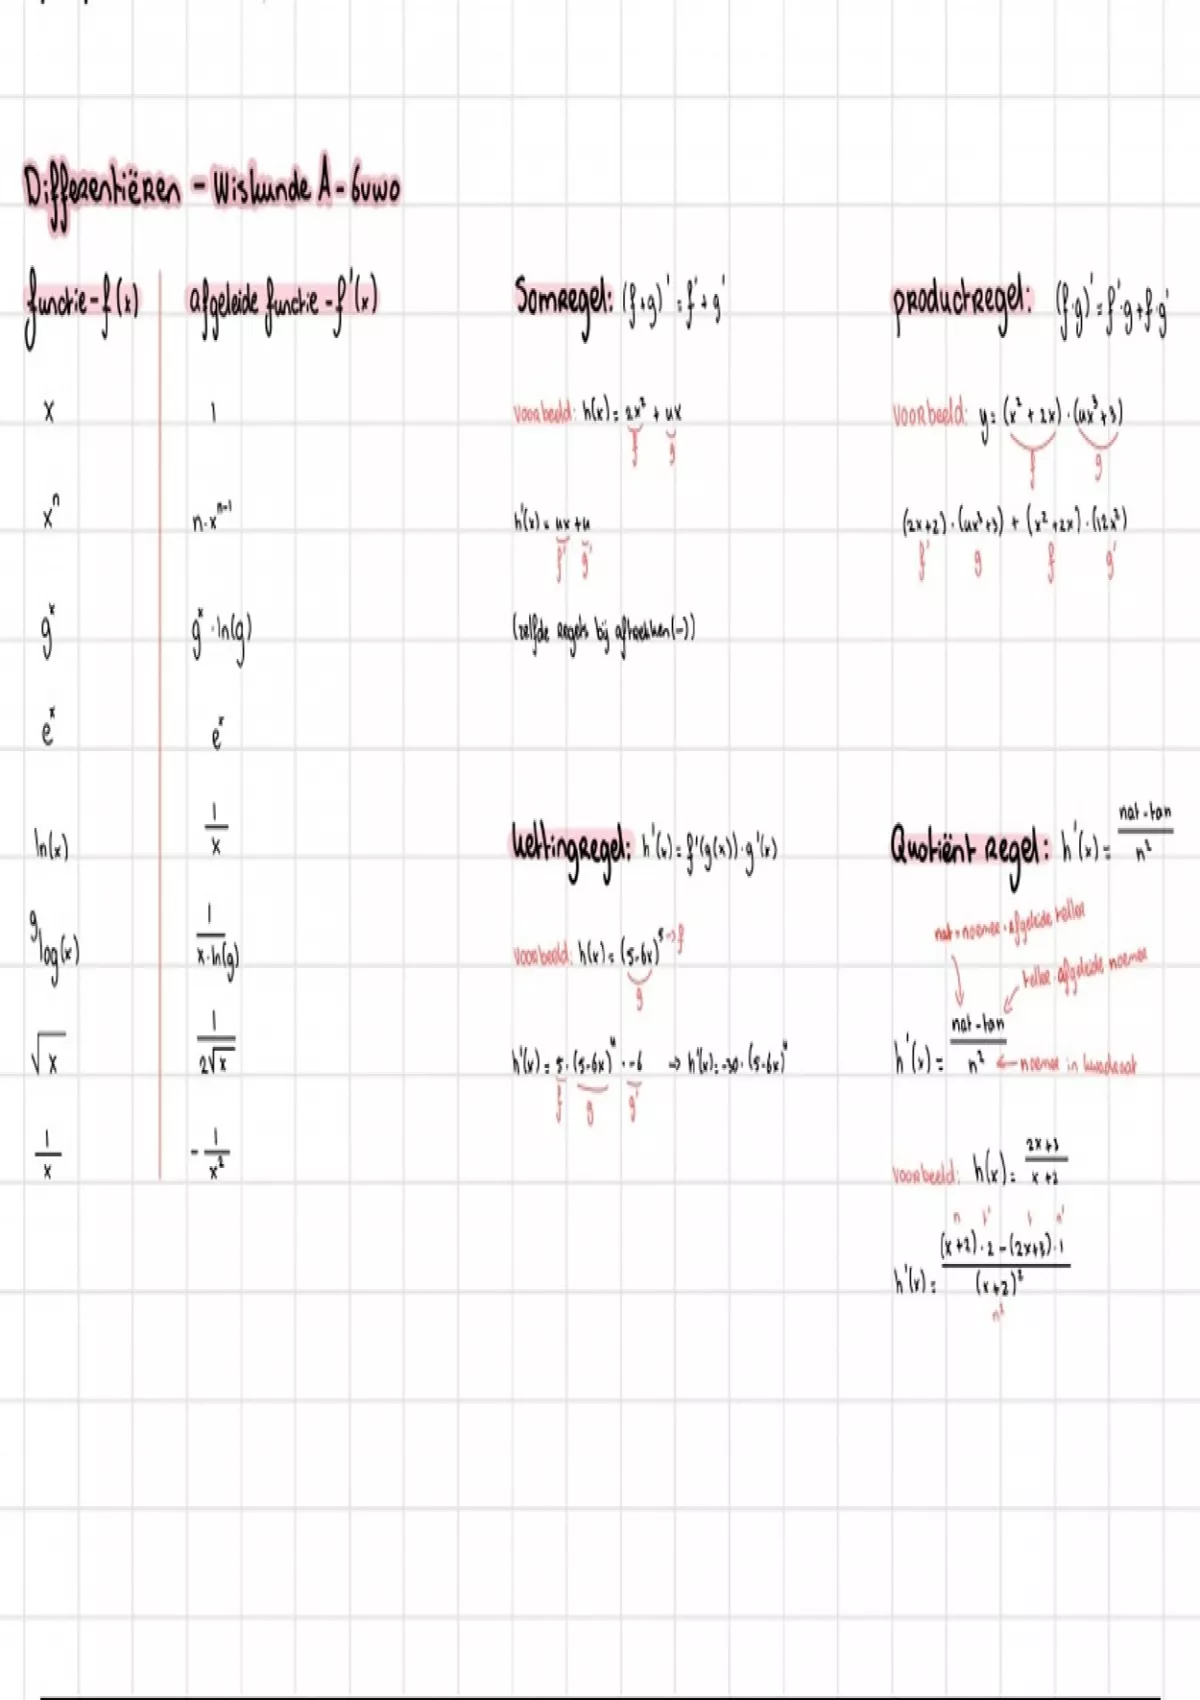 Differentiëren - Wiskunde A - 6vwo
functie - f(x) | afgeleide functie - f'(x)
x | 1
xⁿ | n·xⁿ⁻¹
gˣ | gˣ · ln(g)
eˣ | eˣ
ln(x) | 1/x
ᵍlog(x) | 1/(x·ln(g))
√x | 1/(2√x)
1/x | -1/x²
Somregel: (f+g)' = f' + g'
voorbeeld: h(x) = 2x² + 4x
f g
h'(x) = 4x + 4
f' g'
(zelfde regels bij aftrekken(-))
productregel: (f·g)' = f'·g + f·g'
voorbeeld: y = (x² + 2x) · (4x³ + 3)
f g
(2x+2) · (4x³+3) + (x²+2x) · (12x²)
f' g f g'
kettingregel: h'(x) = f'(g(x)) · g'(x)
voorbeeld: h(x) = (5-6x)⁵ → f
g
h'(x) = 5 · (5-6x)⁴ · -6 → h'(x) = -30 · (5-6x)⁴
f g g'
Quotiënt regel: h'(x) = (nat - tan)/n²
nat = noemer · afgeleide teller
teller · afgeleide noemer
h'(x) = (nat - tan)/n² ← noemer in kwadraat
voorbeeld: h(x) = (2x+3)/(x+2)
n t' t n'
h'(x) = ((x+2) · 2 - (2x+3) · 1)/(x+2)²
n²